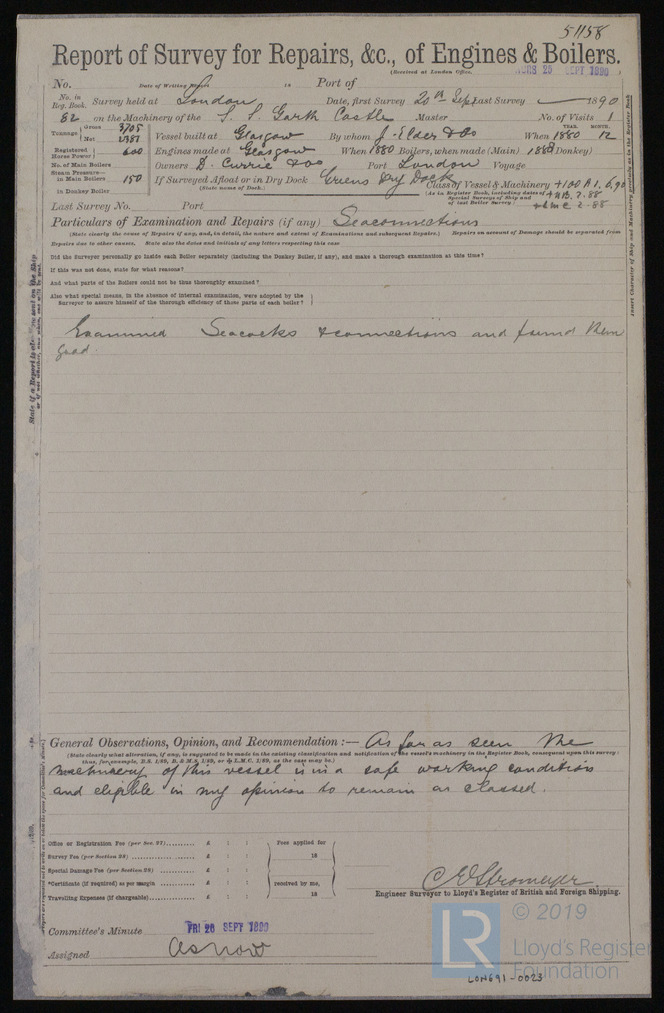 51158
Report of Survey for Repairs, &c., of Engines & Boilers.
(Received at London Office, THURS 25 SEPT 1890)
No. Date of Writing Report is Port of
No. in Reg. Book. Survey held at London Date, first Survey 20th Sept Last Survey 1890
82 on the Machinery of the S. S. Garth Castle Master No. of Visits 1
Tonnage Gross 3705 Net 2387 Vessel built at Glasgow By whom J. Elder & Co When 1880 YEAR. MONTH. 12
Registered Horse Power 600 Engines made at Glasgow When 1880 Boilers, when made (Main) 1880 (Donkey)
No. of Main Boilers Owners D. Currie & Co Port London Voyage
Steam Pressure— in Main Boilers 150 If Surveyed Afloat or in Dry Dock Greens Dry Dock
(State name of Dock.)
in Donkey Boiler
Class of Vessel & Machinery +100 A 1. 6,90
(As in Register Book, including dates of Special Surveys of Ship and of last Boiler Survey)
Last Survey No. Port
Particulars of Examination and Repairs (if any) Seaconnections
(State clearly the cause of Repairs if any, and, in detail, the nature and extent of Examinations and subsequent Repairs.) Repairs on account of Damage should be separated from
Repairs due to other causes. State also the dates and initials of any letters respecting this case
Did the Surveyor personally go inside each Boiler separately (including the Donkey Boiler, if any), and make a thorough examination at this time?
If this was not done, state for what reasons?
And what parts of the Boilers could not be thoroughly examined?
Also what special means, in the absence of internal examination, were adopted by the
Surveyor to assure himself of the thorough efficiency of those parts of each boiler?
Examined Seacocks & connections and found them
good.
General Observations, Opinion, and Recommendation :— As far as seen the
(State clearly what alteration, if any, is suggested to be made in the existing classification and notification of the vessel's machinery in the Register Book, consequent upon this survey:
thus, for example, B.S. 1/89, B. & M.S. 1/89, or L.M.C. 1/89, as the case may be.)
machinery of this vessel is in a safe working condition
and eligible in my opinion to remain as classed.
Office or Registration Fee (per Sec. 27) £ : :
Survey Fee (per Section 28) £ : :
Special Damage Fee (per Section 28) £ : :
*Certificate (if required) as per margin £ : :
Travelling Expenses (if chargeable) £ : :
Fees applied for
18
received by me,
18
C E Stromeyer
Engineer Surveyor to Lloyd's Register of British and Foreign Shipping.
Committee's Minute FRI 26 SEPT 1890
Assigned As now
LR © 2019
Lloyd's Register
Foundation
LON691-0023